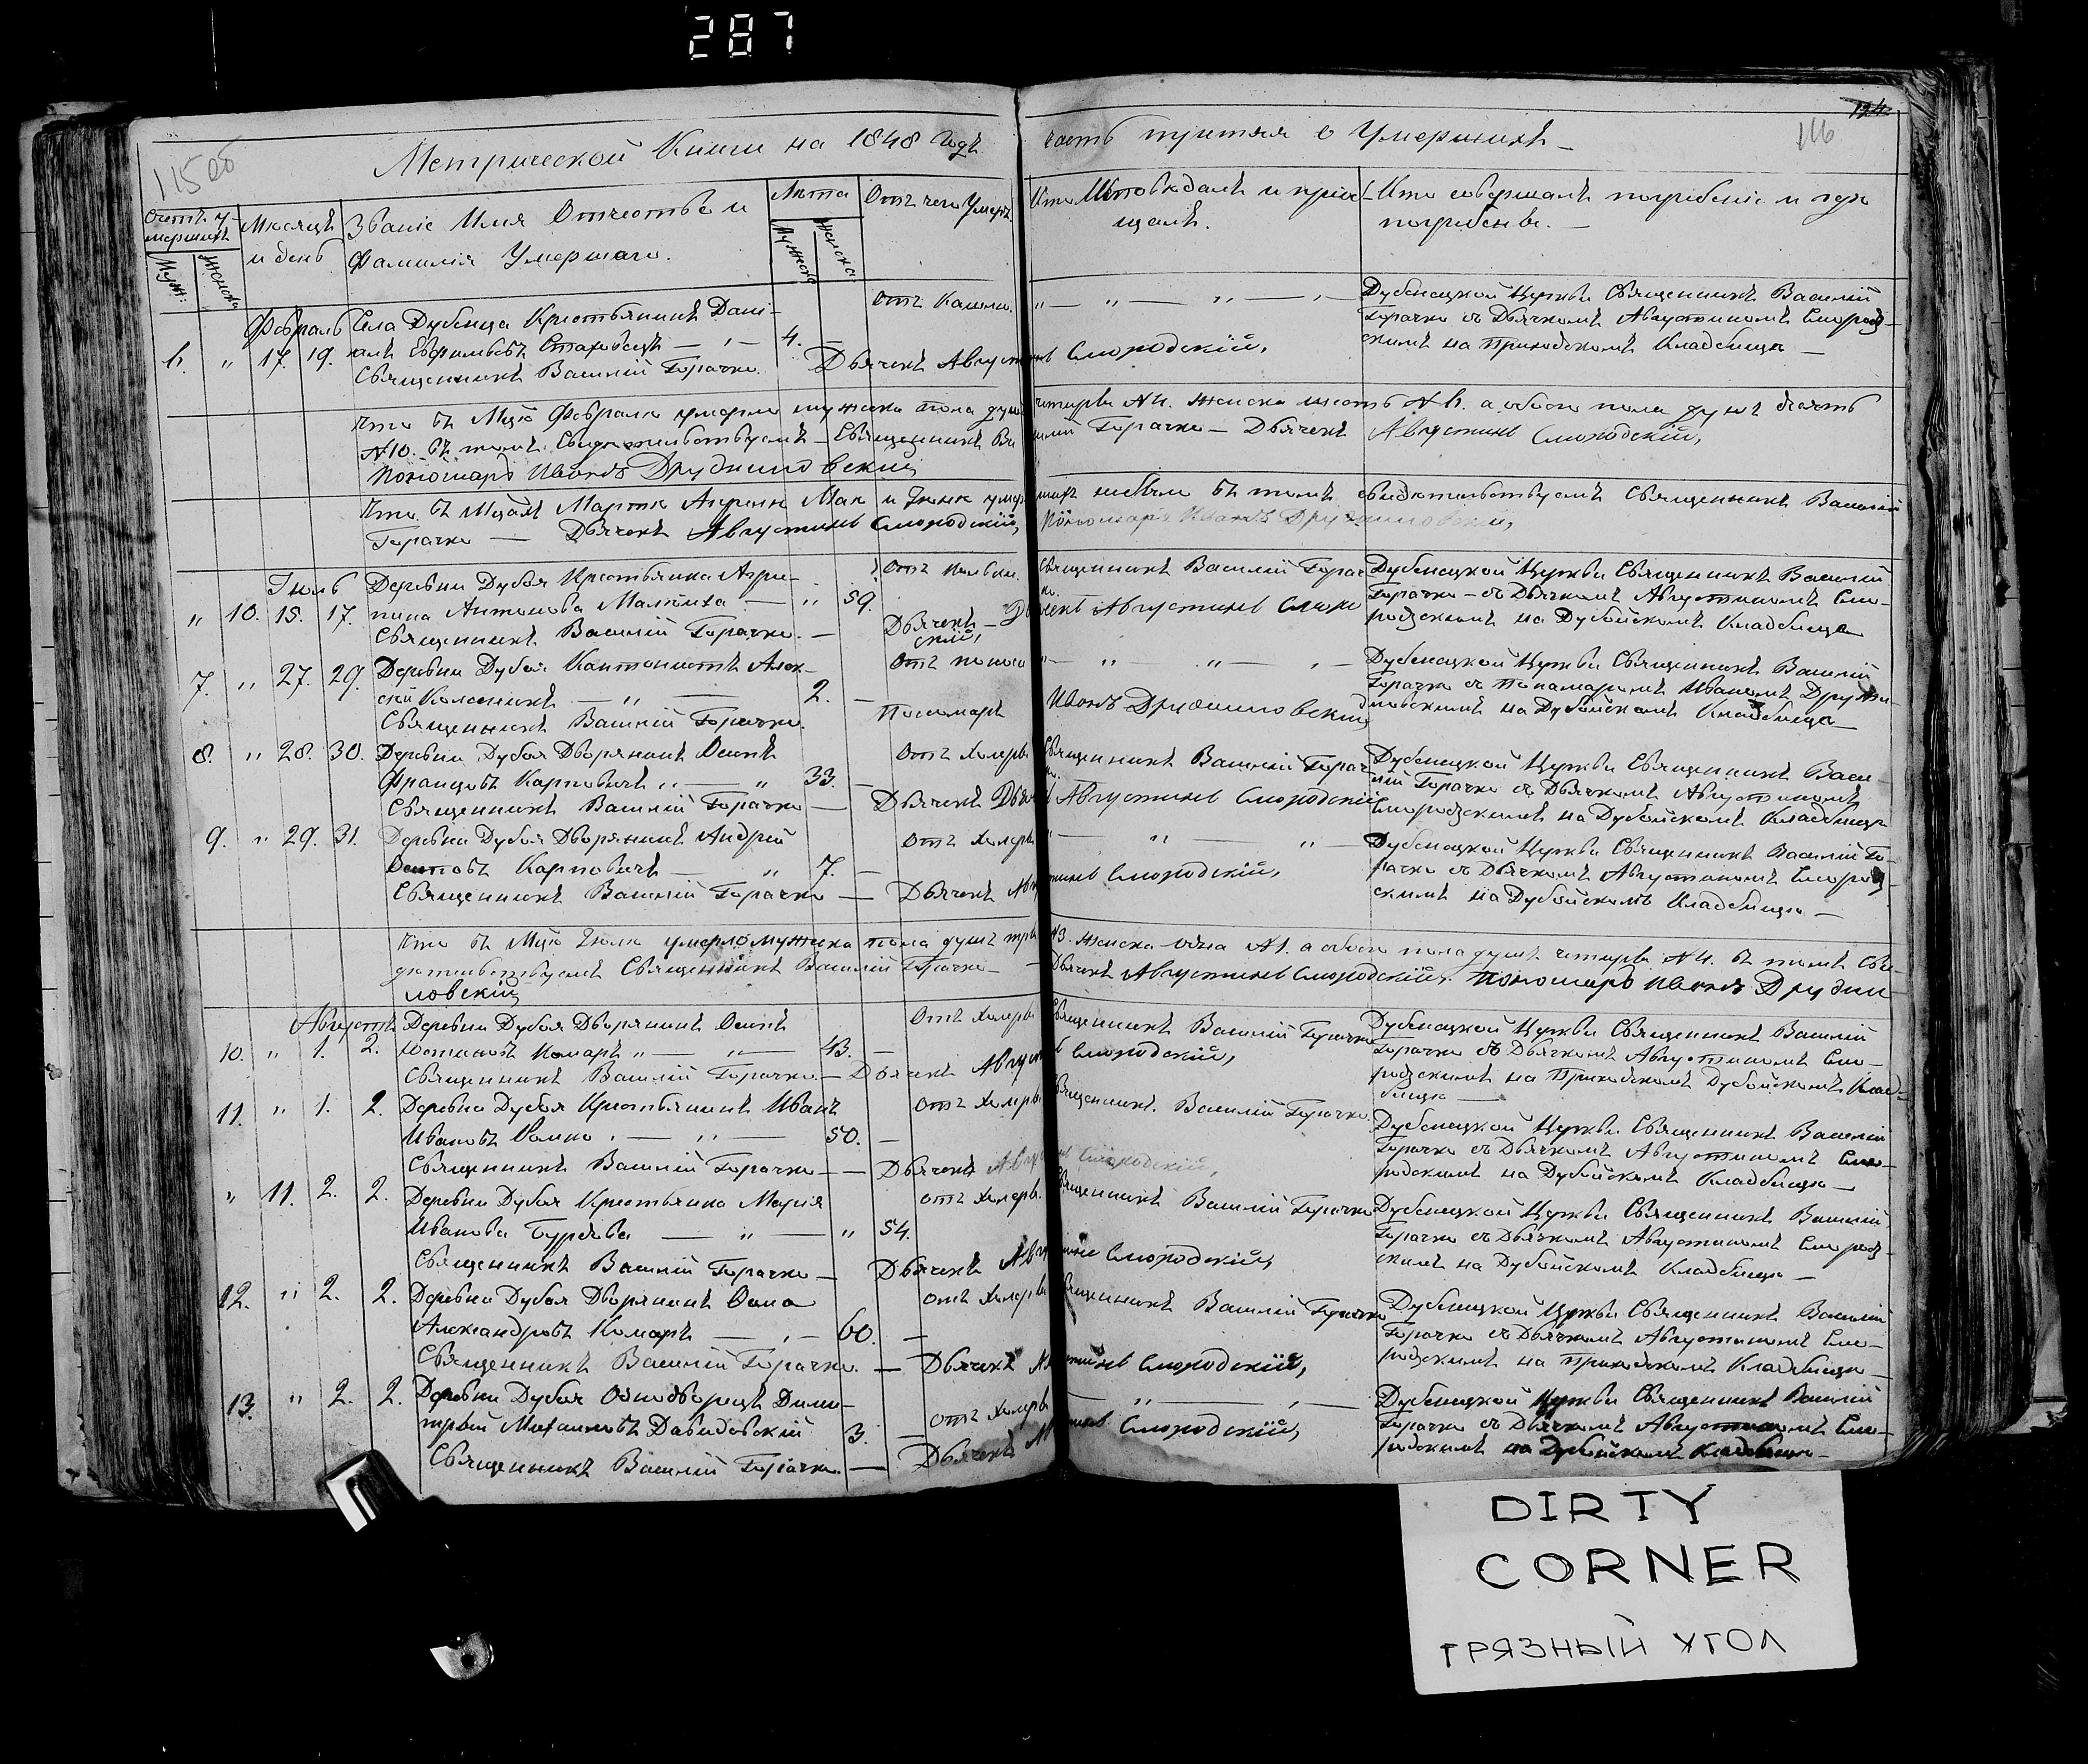 287
115об
124
116
Метрической Книги на 1848 Годъ
часть третяя о Умершихъ
Счетъ у-
мершихъ
Муж:
Женска
Мѣсяцъ
и день
Званіе Имя Отчество и
Фамилія Умершаго.
Лѣта
Мужеска
Женска
Отъ чего Умеръ.
Кто Исповѣдалъ и пріоб-
щалъ.
Кто совершалъ погребеніе и гдѣ
погребены.
Февраль
6. " 17. 19.
Села Дубенца Крестьянинъ Дані-
илъ
4.
Отъ Кашлю.
Священникъ Василій Горачко.
Дьячекъ Августинъ Смородскій,
Дубенецкой Церкви Священникъ Василій
Горачко съ Дьячкомъ Августиномъ Смород-
скимъ на Приходскомъ Кладбищѣ —
Что въ Мцѣ Февралѣ умерло мужеска пола душъ четыре №4. женска шесть №6. а обоего пола душъ десять
№10. въ томъ Свидѣтельствуемъ — Священникъ Василій Горачко — Дьячекъ Августинъ Смородскій,
Пономарь Иванъ Дружиловскій
Что въ Мцахъ Мартѣ Апрелѣ Маѣ и Іюнѣ умершихъ небыло въ томъ свидѣтельствуемъ Священникъ Василій
Горачко — Дьячекъ Августинъ Смородскій, Пономарь Иванъ Дружиловскій,
Іюль
" 10. 15. 17.
Деревни Дубоя Крестьянка Агри-
пина Антонова
" 59.
Священникъ Василій Горачко. —
Священникъ Василій Горач-
ко.
Дьячекъ
скій,
Дубенецкой Церкви Священникъ Василій
Горачко — съ Дьячкомъ Августиномъ Смо-
родскимъ на Дубойскомъ Кладбищѣ
7. " 27. 29.
Деревни Дубоя Кантонистъ Алек-
сей
2.
Отъ поноса
Священникъ Василій Горачко.
Пономарь Иванъ Дружиловскій
Дубенецкой Церкви Священникъ Василій
Горачко съ Понамаремъ Иваномъ Дружи-
ловскимъ на Дубойскомъ Кладбищѣ
8. " 28. 30.
Деревни Дубоя Дворянинъ Осипъ
Францовъ Карповичъ " — " 33.
Отъ Холеры
Священникъ Василій Горач-
ко.
Священникъ Василій Горачко —
Дьячекъ Августинъ Смородскій
Дубенецкой Церкви Священникъ Васи-
лій Горачко съ Дьячкомъ Августиномъ
Смородскимъ на Дубойскомъ Кладбищѣ
9. " 29. 31.
Деревни Дубоя Дворянинъ Андрей
Осиповъ Карповичъ — " 7. —
Отъ Холеры
Священникъ Василій Горачко —
Дьячекъ Августинъ Смородскій,
Дубенецкой Церкви Священникъ Василій Го-
рачко съ Дьячкомъ Августиномъ Смород-
скимъ на Дубойскомъ Кладбищѣ —
Что въ Мцѣ Іюлѣ умерло мужеска пола душъ три №3. женска одна №1. а обоего пола душъ четыре №4. въ томъ Сви-
дѣтельствуемъ Священникъ Василій Горачко — Дьячекъ Августинъ Смородскій. Пономарь Иванъ Дружи-
ловскій
Августъ
10. " 1. 2.
Деревни Дубоя Дворянинъ Осипъ
Юстиновъ Комаръ " — " — 43. —
Отъ Холеры
Священникъ Василій Горачко
Священникъ Василій Горачко — Дьячекъ Августинъ Смородскій,
Дубенецкой Церкви Священникъ Василій
Горачко съ Дьячкомъ Августиномъ Смо-
родскимъ на Приходскомъ Дубойскомъ Клад-
бищѣ —
11. " 1. 2.
Деревни Дубоя Крестьянинъ Иванъ
Ивановъ
50. —
Отъ Холеры
Священникъ Василій Горачко.
Священникъ Василій Горачко — Дьячекъ Августинъ Смородскій,
Дубенецкой Церкви Священникъ Василій
Горачко съ Дьячкомъ Августиномъ Смо-
родскимъ на Дубойскомъ Кладбищѣ —
" 11. 2. 2.
Деревни Дубоя Крестьянка Марія
Иванова
" 54.
Отъ Холеры.
Священникъ Василій Горачко
Священникъ Василій Горачко — Дьячекъ Августинъ Смородскій,
Дубенецкой Церкви Священникъ Василій
Горачко съ Дьячкомъ Августиномъ Смород-
скимъ на Дубойскомъ Кладбищѣ —
12. " 2. 2.
Деревни Дубоя Дворянинъ Ѳома
Александровъ Комаръ — " — 60. —
Отъ Холеры
Священникъ Василій Горачко
Священникъ Василій Горачко. — Дьячекъ Августинъ Смородскій,
Дубенецкой Церкви Священникъ Василій
Горачко съ Дьячкомъ Августиномъ Смо-
родскимъ на Приходскомъ Кладбищѣ —
13. " 2. 2.
Деревни Дубоя Однодворецъ Дими-
трій Михаиловъ Давидовскій 3. —
Отъ Холеры
Священникъ Василій Горачко. — Дьячекъ Августинъ Смородскій,
Дубенецкой Церкви Священникъ Василій
Горачко съ Дьячкомъ Августиномъ Смо-
родскимъ на Дубойскомъ Кладбищѣ —
DIRTY
CORNER
ГРЯЗНЫЙ УГОЛ